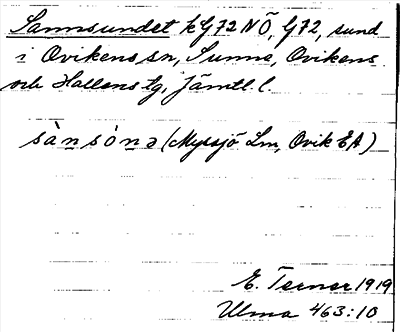 Sannsundet kG72NÖ, G72, sund
i Ovikens sn, Sunne, Ovikens
och Hallens tg, Jämtl. l.
sàn sònə (Myssjö Lm, Ovik EA)
E. Terner 1919
Ulma 463:10